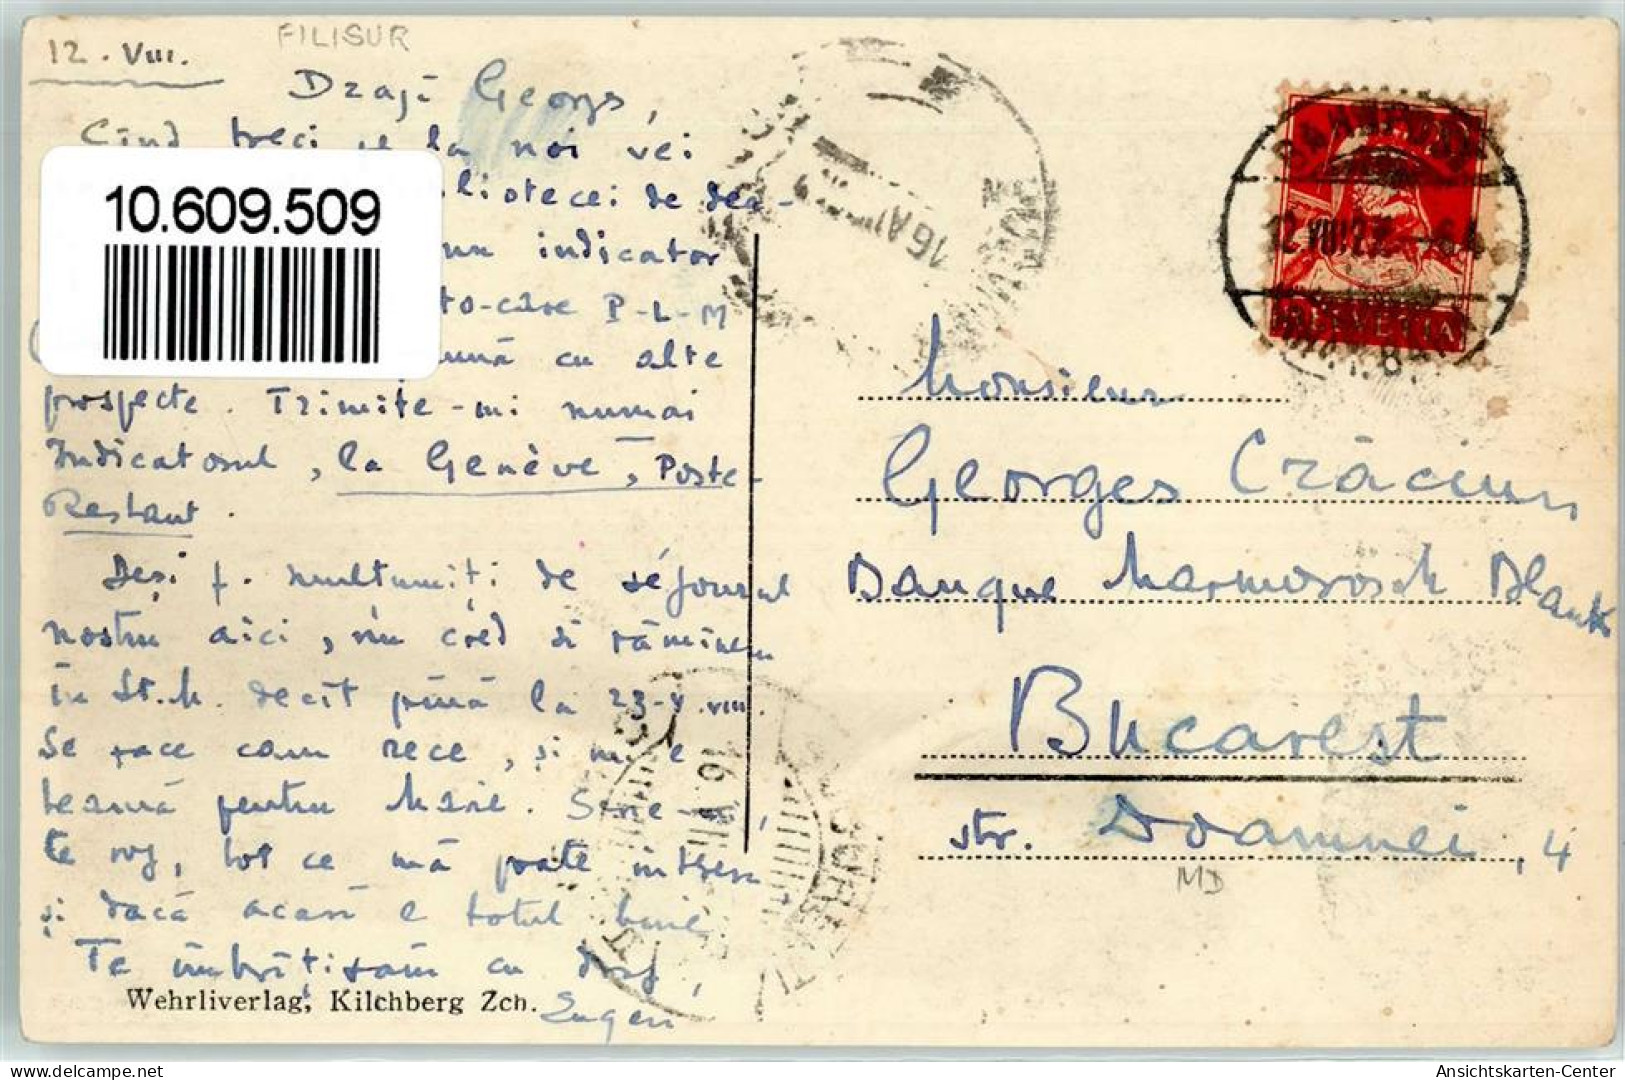 12. VIII.
FILISUR
Dragă Georges,
Cînd treci pe la noi vei
10.609.509
bliotecei de dea-
un indicator
to-care P-L-M
ună cu alte
prospecte. Trimite-mi numai
Indicatorul, la Genève, Poste-
Restant.
Deși f. mulțumiți de séjourul
nostru aici, nu cred să rămînem
în St.M. decît până la 23-VIII.
Se face cam rece, și mi e
teamă pentru Marie. Scrie-mi,
te rog, tot ce mă poate interesa
și dacă acasă e totul bine
Te îmbrățișăm cu drag,
Eugen
Wehrliverlag, Kilchberg Zch.
16 AU
HELVETIA
Monsieur
Georges Crăciun
Banque Marmorosch Blank
Bucarest
str. Doamnei, 4
MD
akpool.de
Ansichtskarten-Center